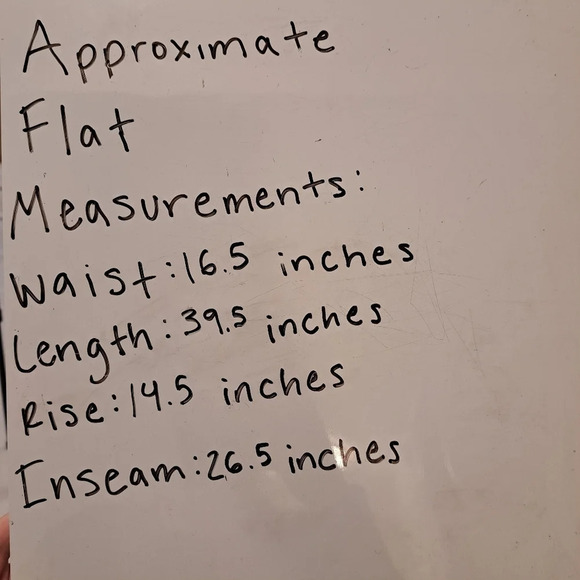 Approximate
Flat
Measurements:
Waist:16.5 inches
Length:39.5 inches
Rise:14.5 inches
Inseam:26.5 inches